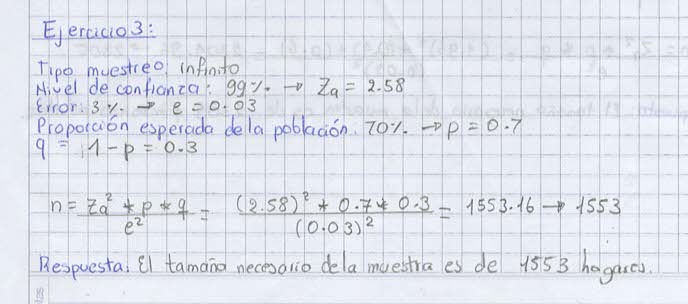 Ejercicio 3:
Tipo muestreo: infinito
Nivel de confianza: 99% → Za = 2.58
Error: 3% → e = 0.03
Proporción esperada de la población: 70% → p = 0.7
q = 1 - p = 0.3
n = Za² * p * q / e² = (2.58)² * 0.7 * 0.3 / (0.03)² = 1553.16 → 1553
Respuesta: El tamaño necesario de la muestra es de 1553 hogares.